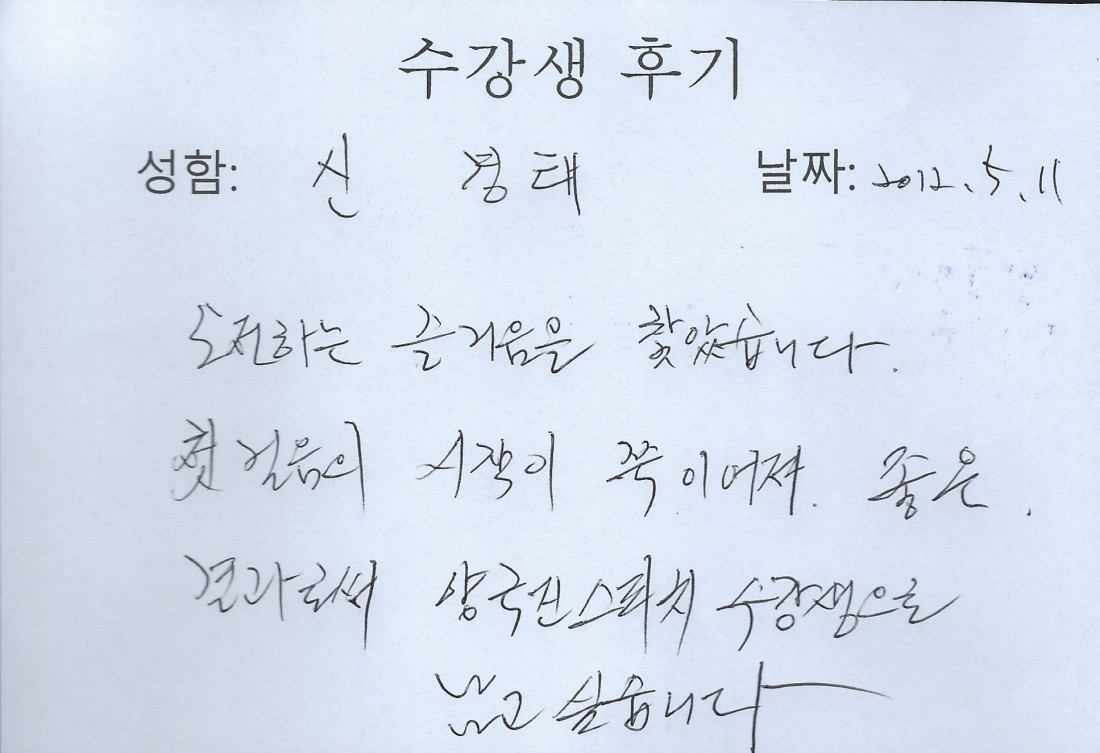 수강생 후기
성함: 신 경태 날짜: 2012. 5. 11
도전하는 즐거움을 찾았습니다.
첫 걸음의 시작이 쭉 이어져. 좋은.
결과로써 양국진스피치 수강생으로
남고 싶습니다